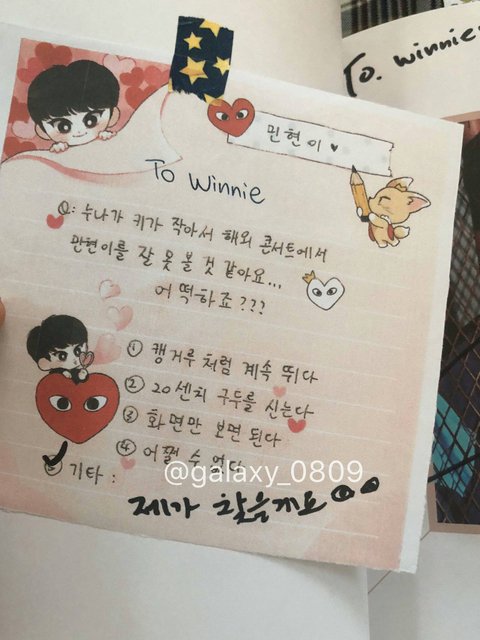 To. winnie
민현이 ♥
To Winnie
Q: 누나가 키가 작아서 해외 콘서트에서
민현이를 잘 못 볼 것 같아요...
어떡하죠???
① 캥거루처럼 계속 뛰다
② 20센치 구두를 신는다
③ 화면만 보면 된다
④ 어쩔 수 없다
기타 :
@galaxy_0809
제가 찾을게요